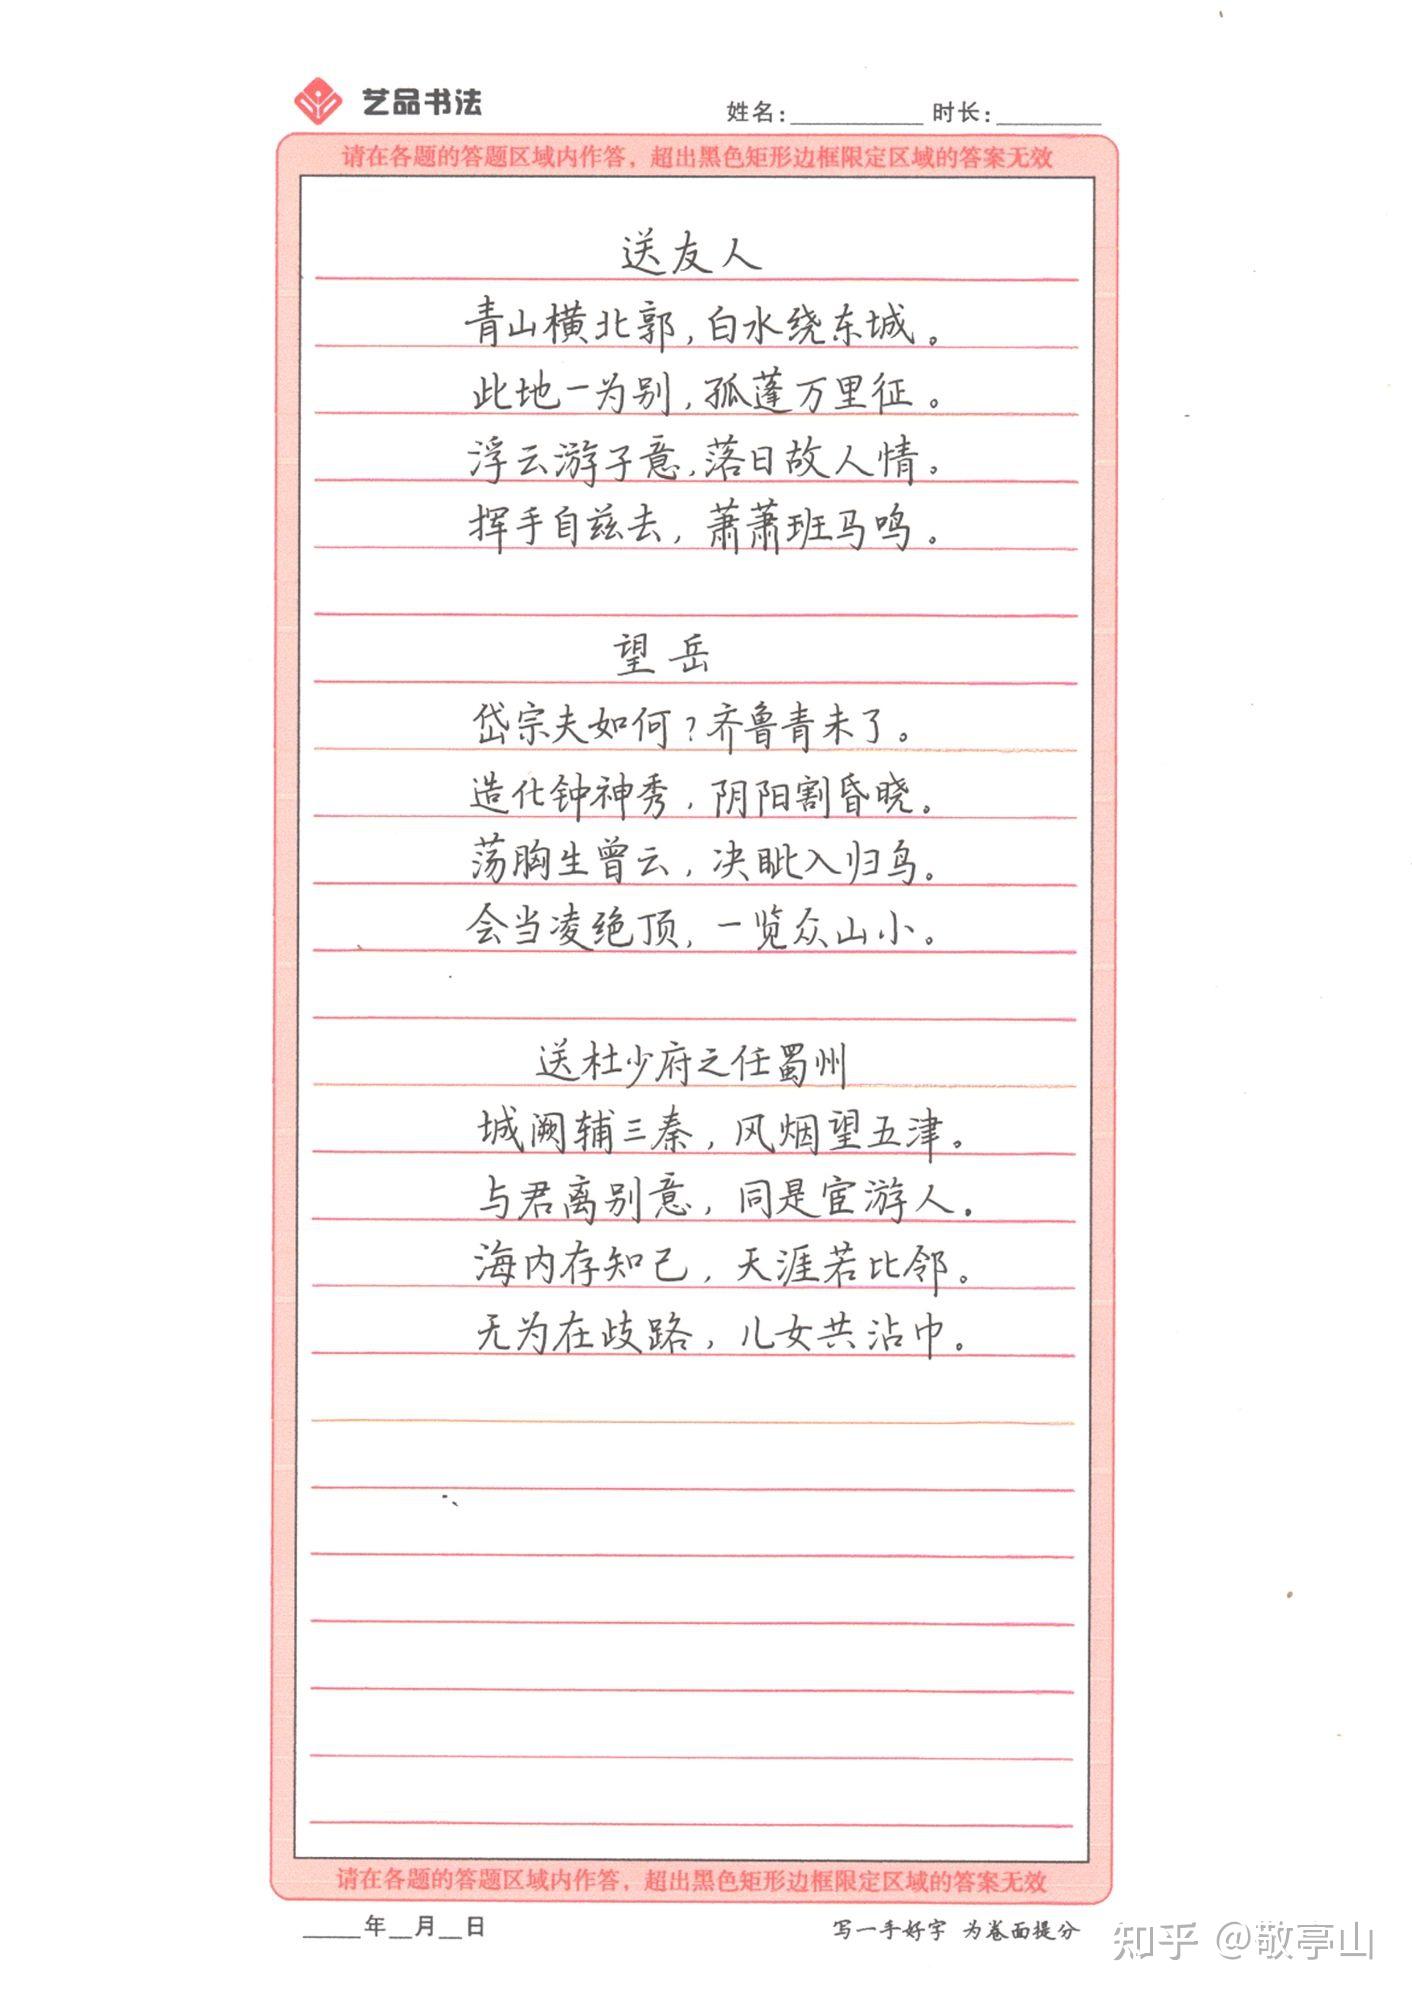 艺品书法
姓名:__________ 时长:________
请在各题的答题区域内作答，超出黑色矩形边框限定区域的答案无效
送友人
青山横北郭,白水绕东城。
此地一为别,孤蓬万里征。
浮云游子意,落日故人情。
挥手自兹去,萧萧班马鸣。
望岳
岱宗夫如何?齐鲁青未了。
造化钟神秀,阴阳割昏晓。
荡胸生曾云,决眦入归鸟。
会当凌绝顶,一览众山小。
送杜少府之任蜀州
城阙辅三秦,风烟望五津。
与君离别意,同是宦游人.
海内存知己,天涯若比邻。
无为在歧路,儿女共沾巾。
请在各题的答题区域内作答，超出黑色矩形边框限定区域的答案无效
_____年__月__日 写一手好字 为卷面提分
知乎 @敬亭山